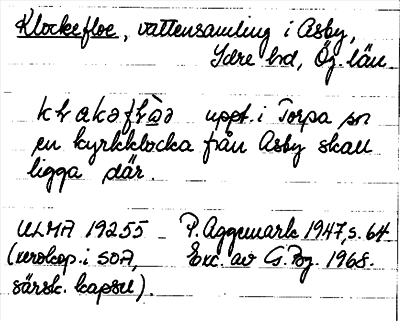 Klockefloe, vattensamling i Asby,
Ydre hd, Ög. län.
uppt. i Torpa sn
en kyrkklocka från Asby skall
ligga där.
ULMA 19255 P. Aggemark 1947, s. 64
(xerokop. i SOA, Exc. av G. Bg. 1968.
särsk. kapsel).